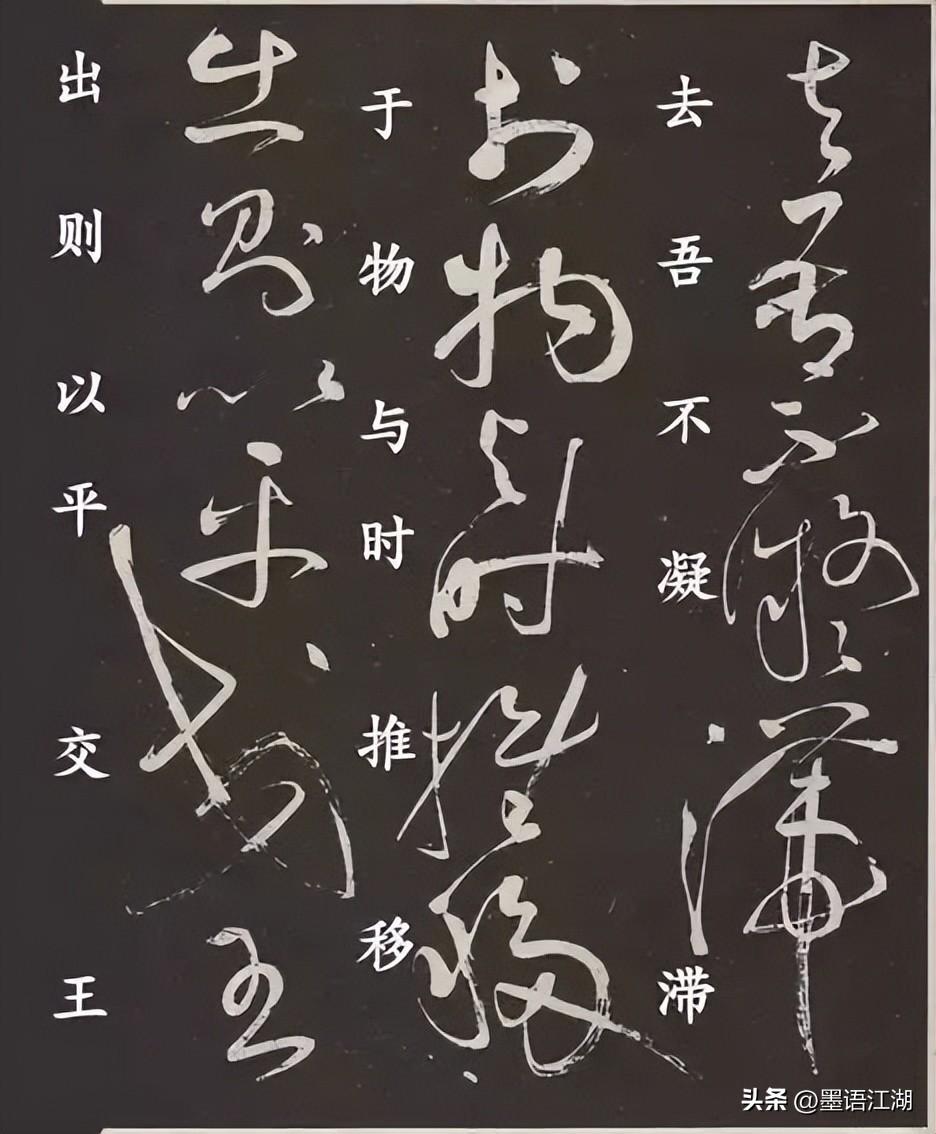 去吾不凝滞
于物与时推移
出则以平交王
头条 @墨语江湖